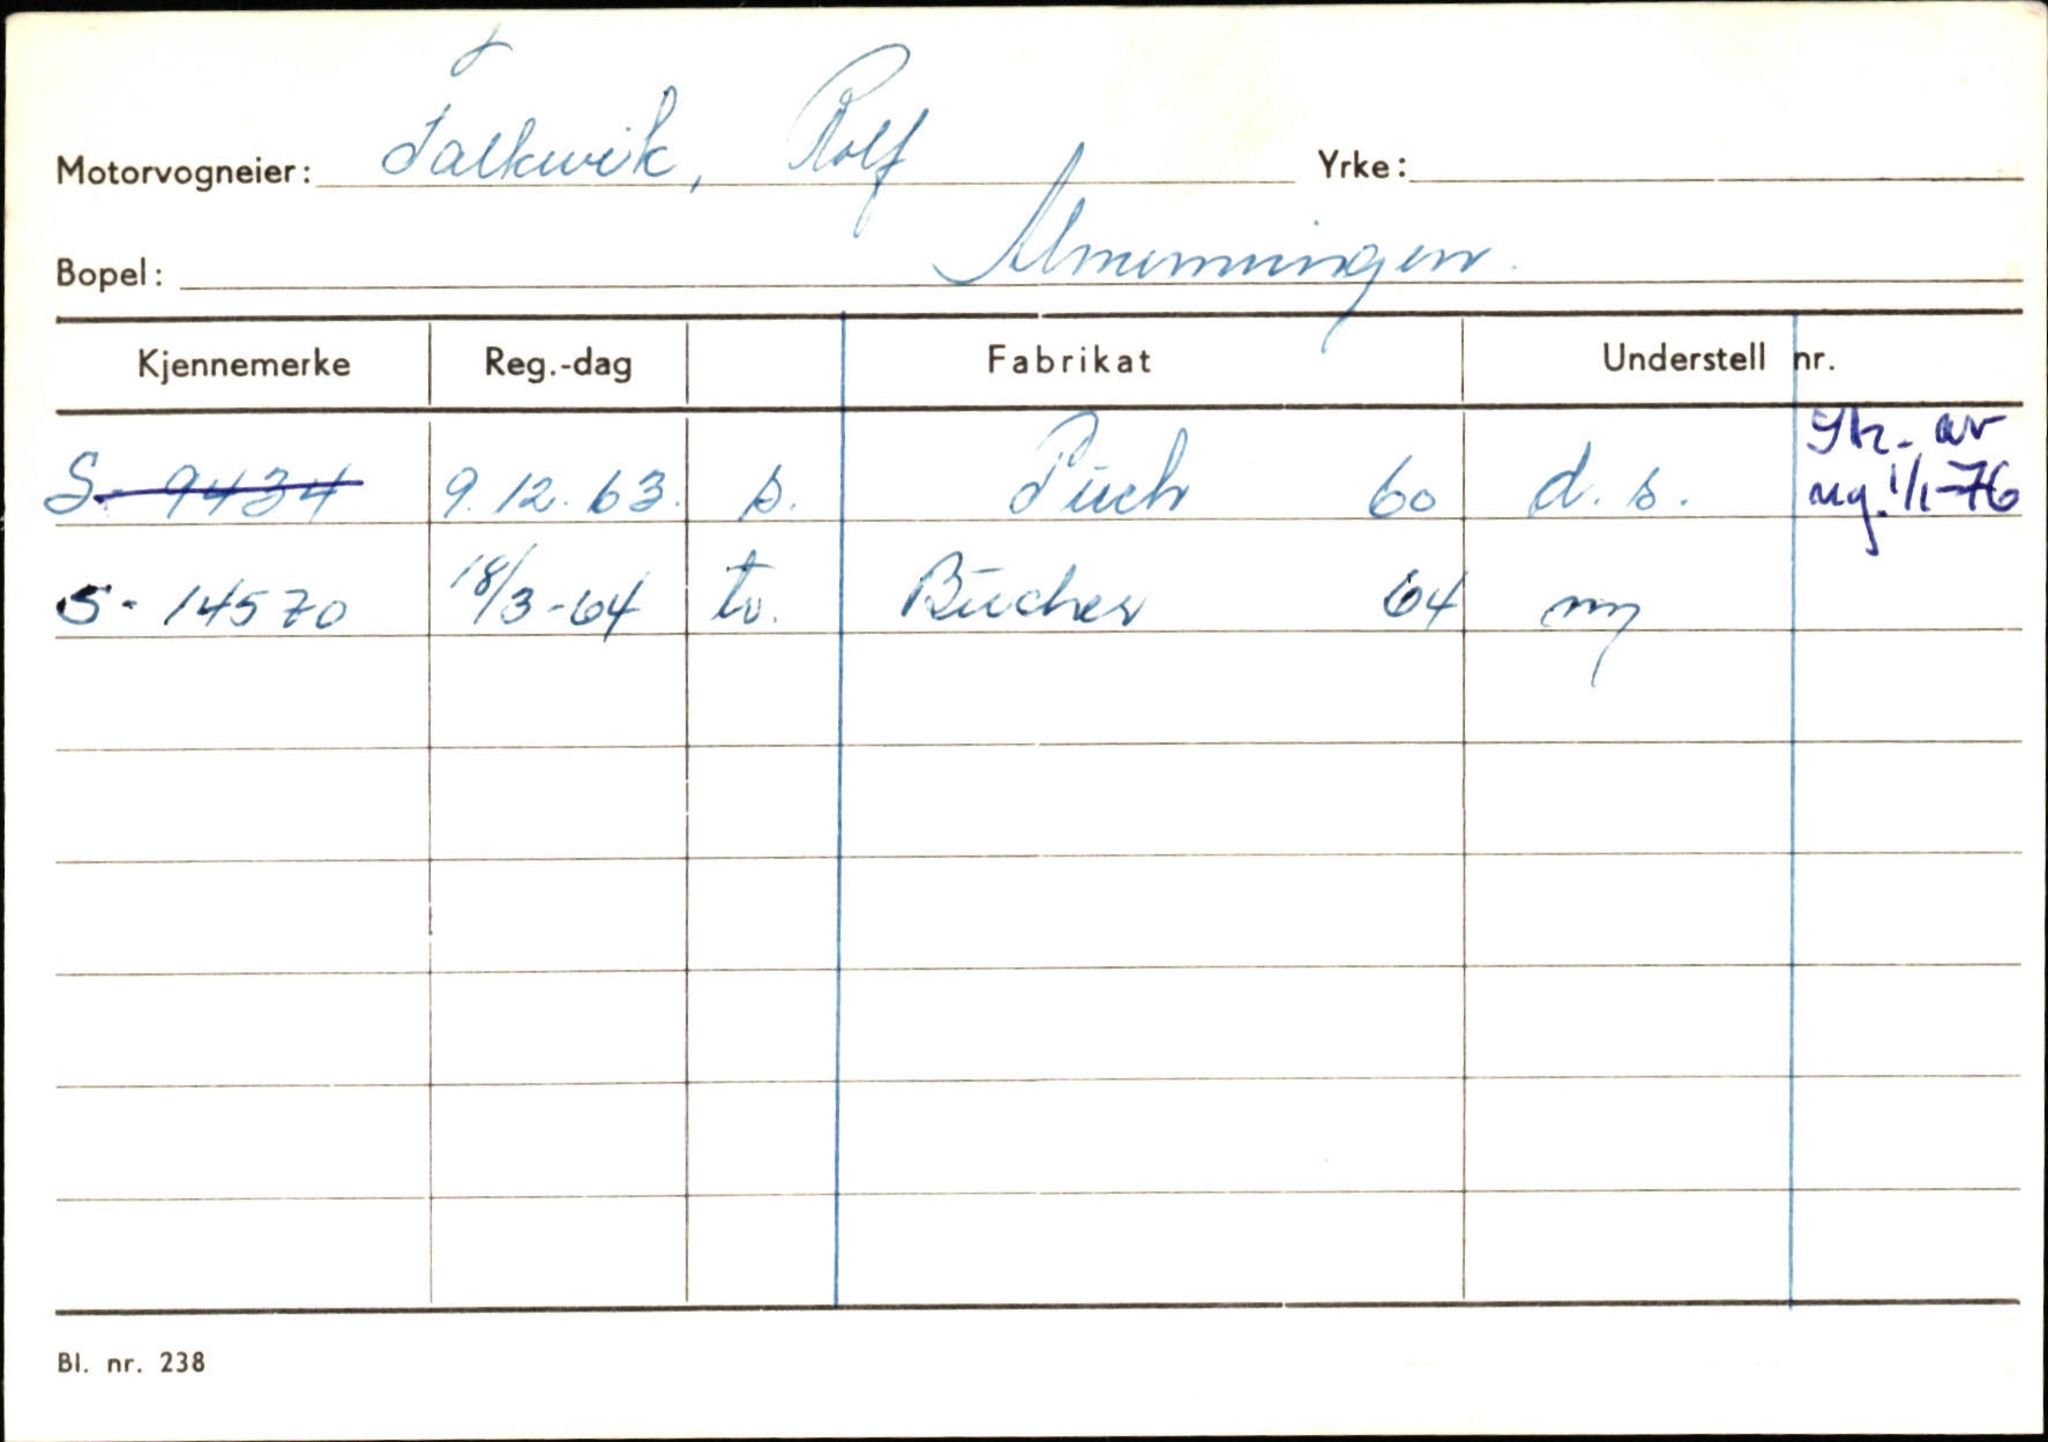 Motorvogneier: Falkevik, Rolf Yrke:
Bopel: Almenningen.
Kjennemerke Reg.-dag Fabrikat Understell nr.
S- 9434 9.12.63. s. Puch 60 d.s. Sk. av
reg. 1/1-76
S- 14570 18/3-64 tv. Bucher 64 ny
Bl. nr. 238